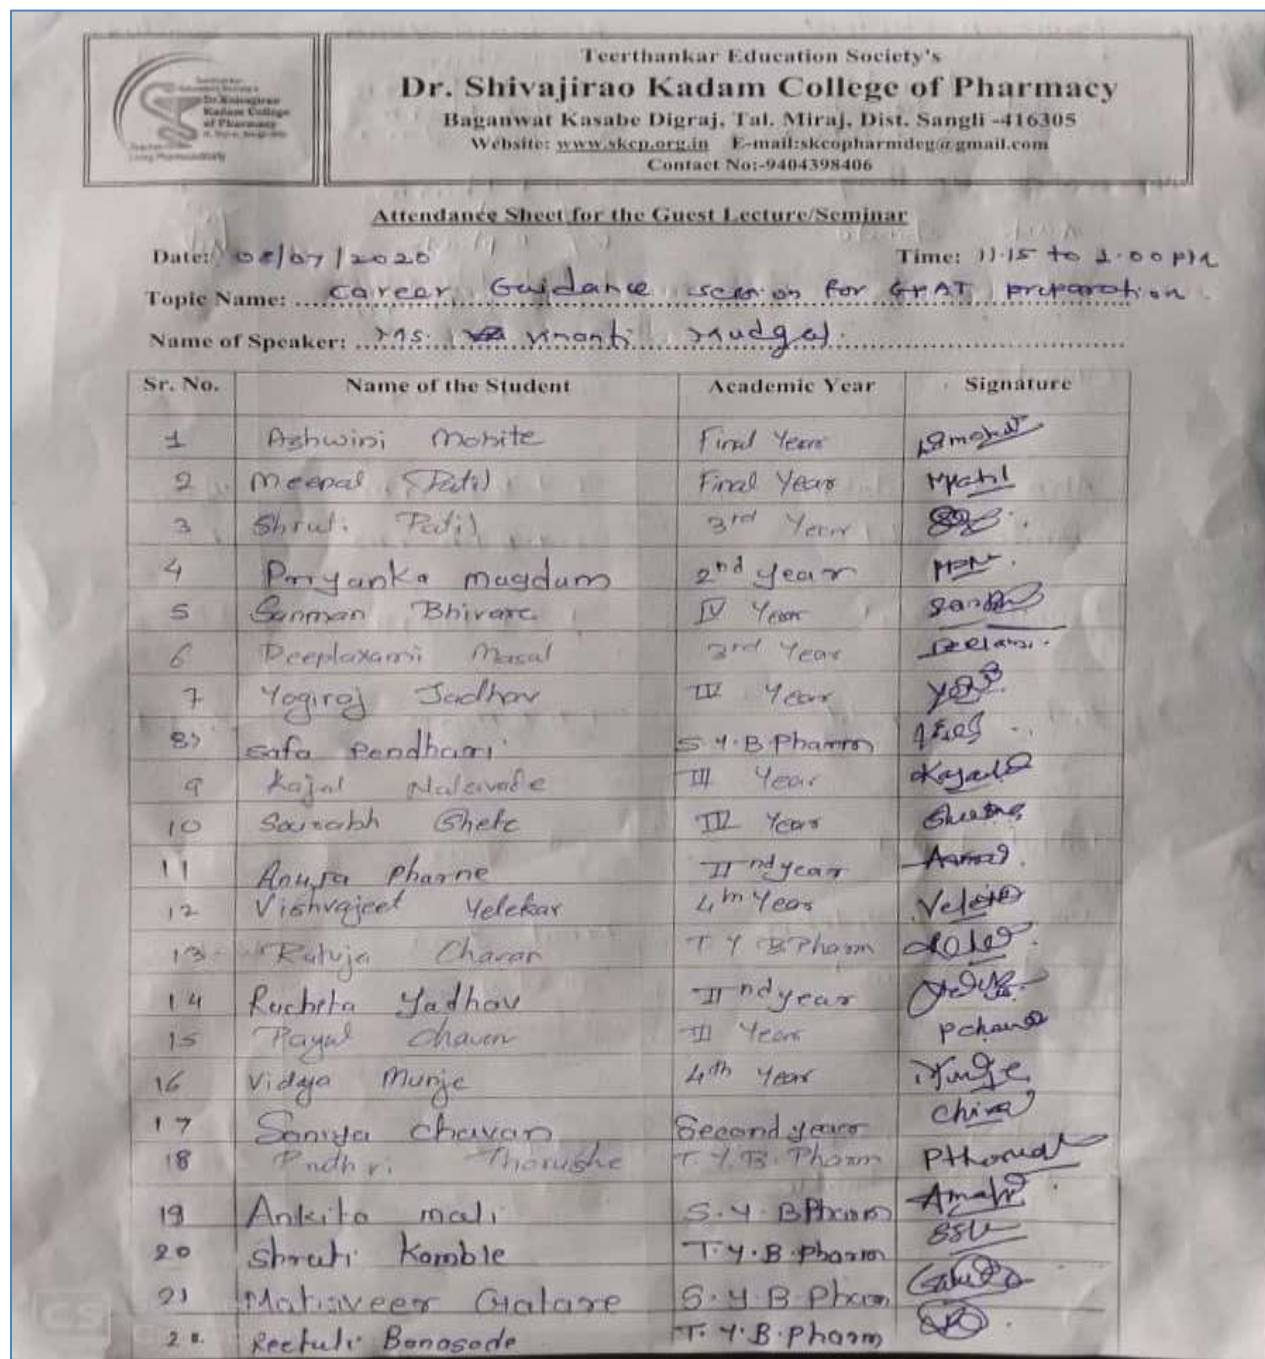 Teerthankar Education Society's
Dr. Shivajirao Kadam College of Pharmacy
Baganwat Kasabe Digraj, Tal. Miraj, Dist. Sangli -416305
Website: www.skcp.org.in E-mail:skcopharmdeg@gmail.com
Contact No:-9404398406
Dr.Shivajirao
Kadam College
of Pharmacy
Attendance Sheet for the Guest Lecture/Seminar
Date: 08/07/2020 Time: 11.15 to 1.00 PM
Topic Name: Career Guidance session for GPAT preparation
Name of Speaker: Ms. Vinanti Mudgal
Sr. No. Name of the Student Academic Year Signature
1 Ashwini Mohite Final Year
2 Meenal Patil Final Year MPatil
3 Shruti Patil 3rd Year
4 Priyanka magdum 2nd year
5 Sanman Bhivare IV Year
6 Deeplaxami Masal 3rd Year
7 Yogiraj Jadhav IV Year
8) Safa Pendhari S.Y.B Pharm
9 Kajal Nalavade III Year Kajal
10 Sourabh Shete III Year
11 Anuja Pharne IInd year
12 Vishvajeet Yelekar 4th Year
13 Rutuja Chavan T.Y.B Pharm
14 Rucheta Yadhav IInd year
15 Payal Chavan III Year PChavan
16 Vidya Munje 4th Year
17 Saniya Chavan Second year
18 Thorushe T.Y.B. Pharm
19 Ankita mali S.Y.BPharm Amali
20 Shruti Kamble T.Y.B.Pharm SSK
21 Mahaveer Gatare S.Y.B Pharm
2 Bansode T.Y.B.Pharm
CS